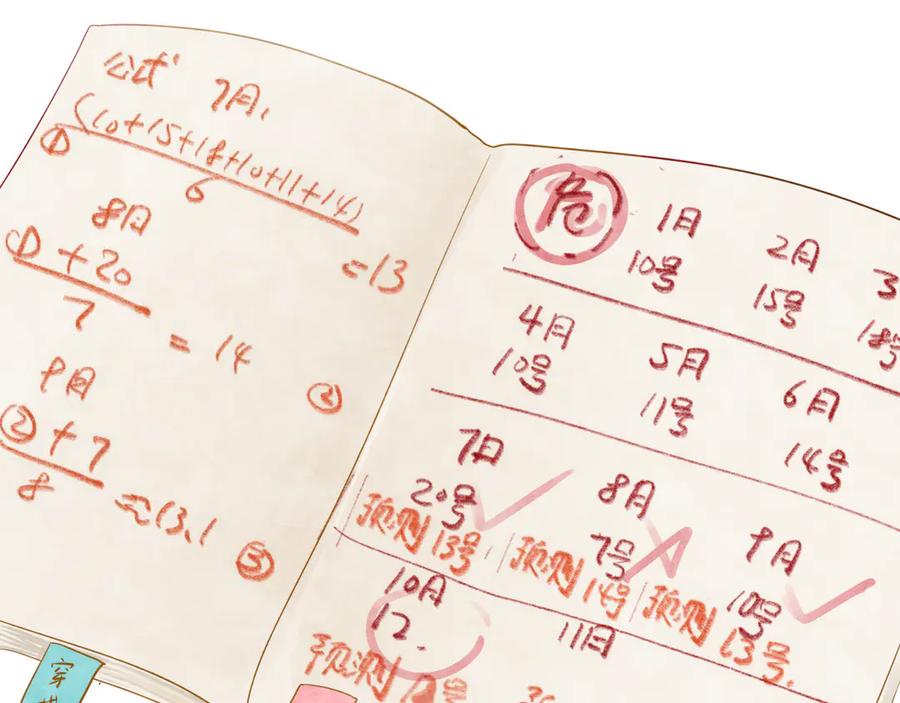 公式 7月,
① (10+15+18+10+11+14)
6
=13
8月
①+20
7
= 14
②
9月
②+7
8
≈13.1
③
危 1月 2月 3
10号 15号 18号
4月 5月 6月
10号 11号 14号
7月 8月 9月
20号 7号 10号
预测13号 预测14号 预测13号.
10月 11月
12.
预测
穿